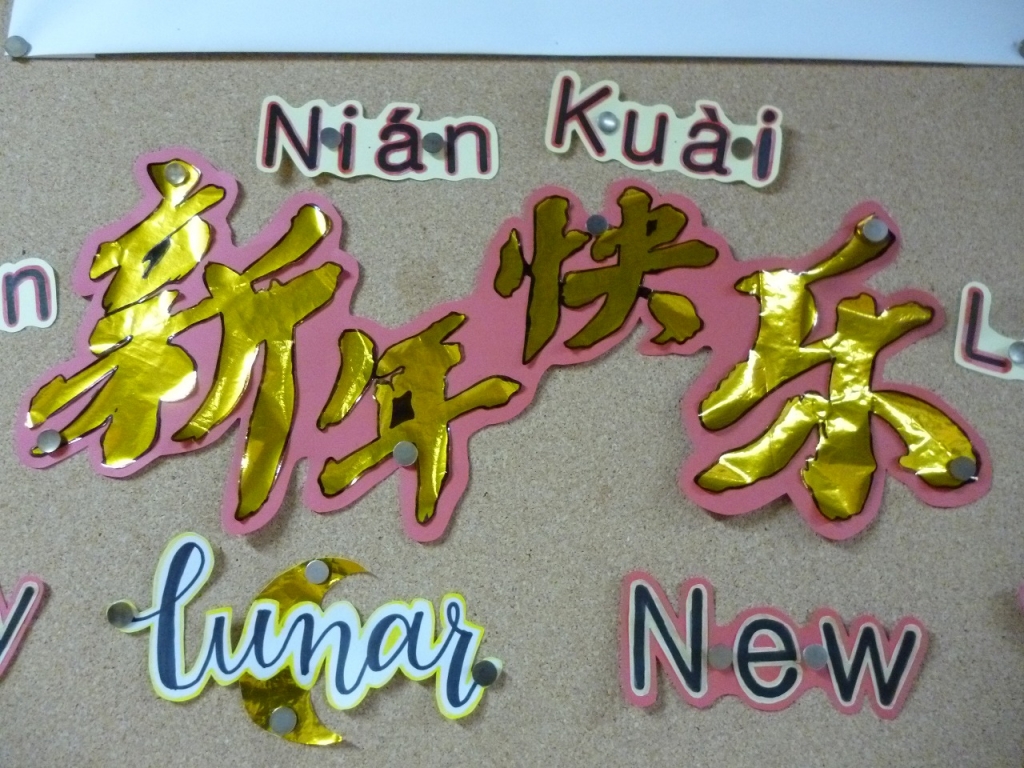 n Nián Kuài L
新年快乐
y lunar New